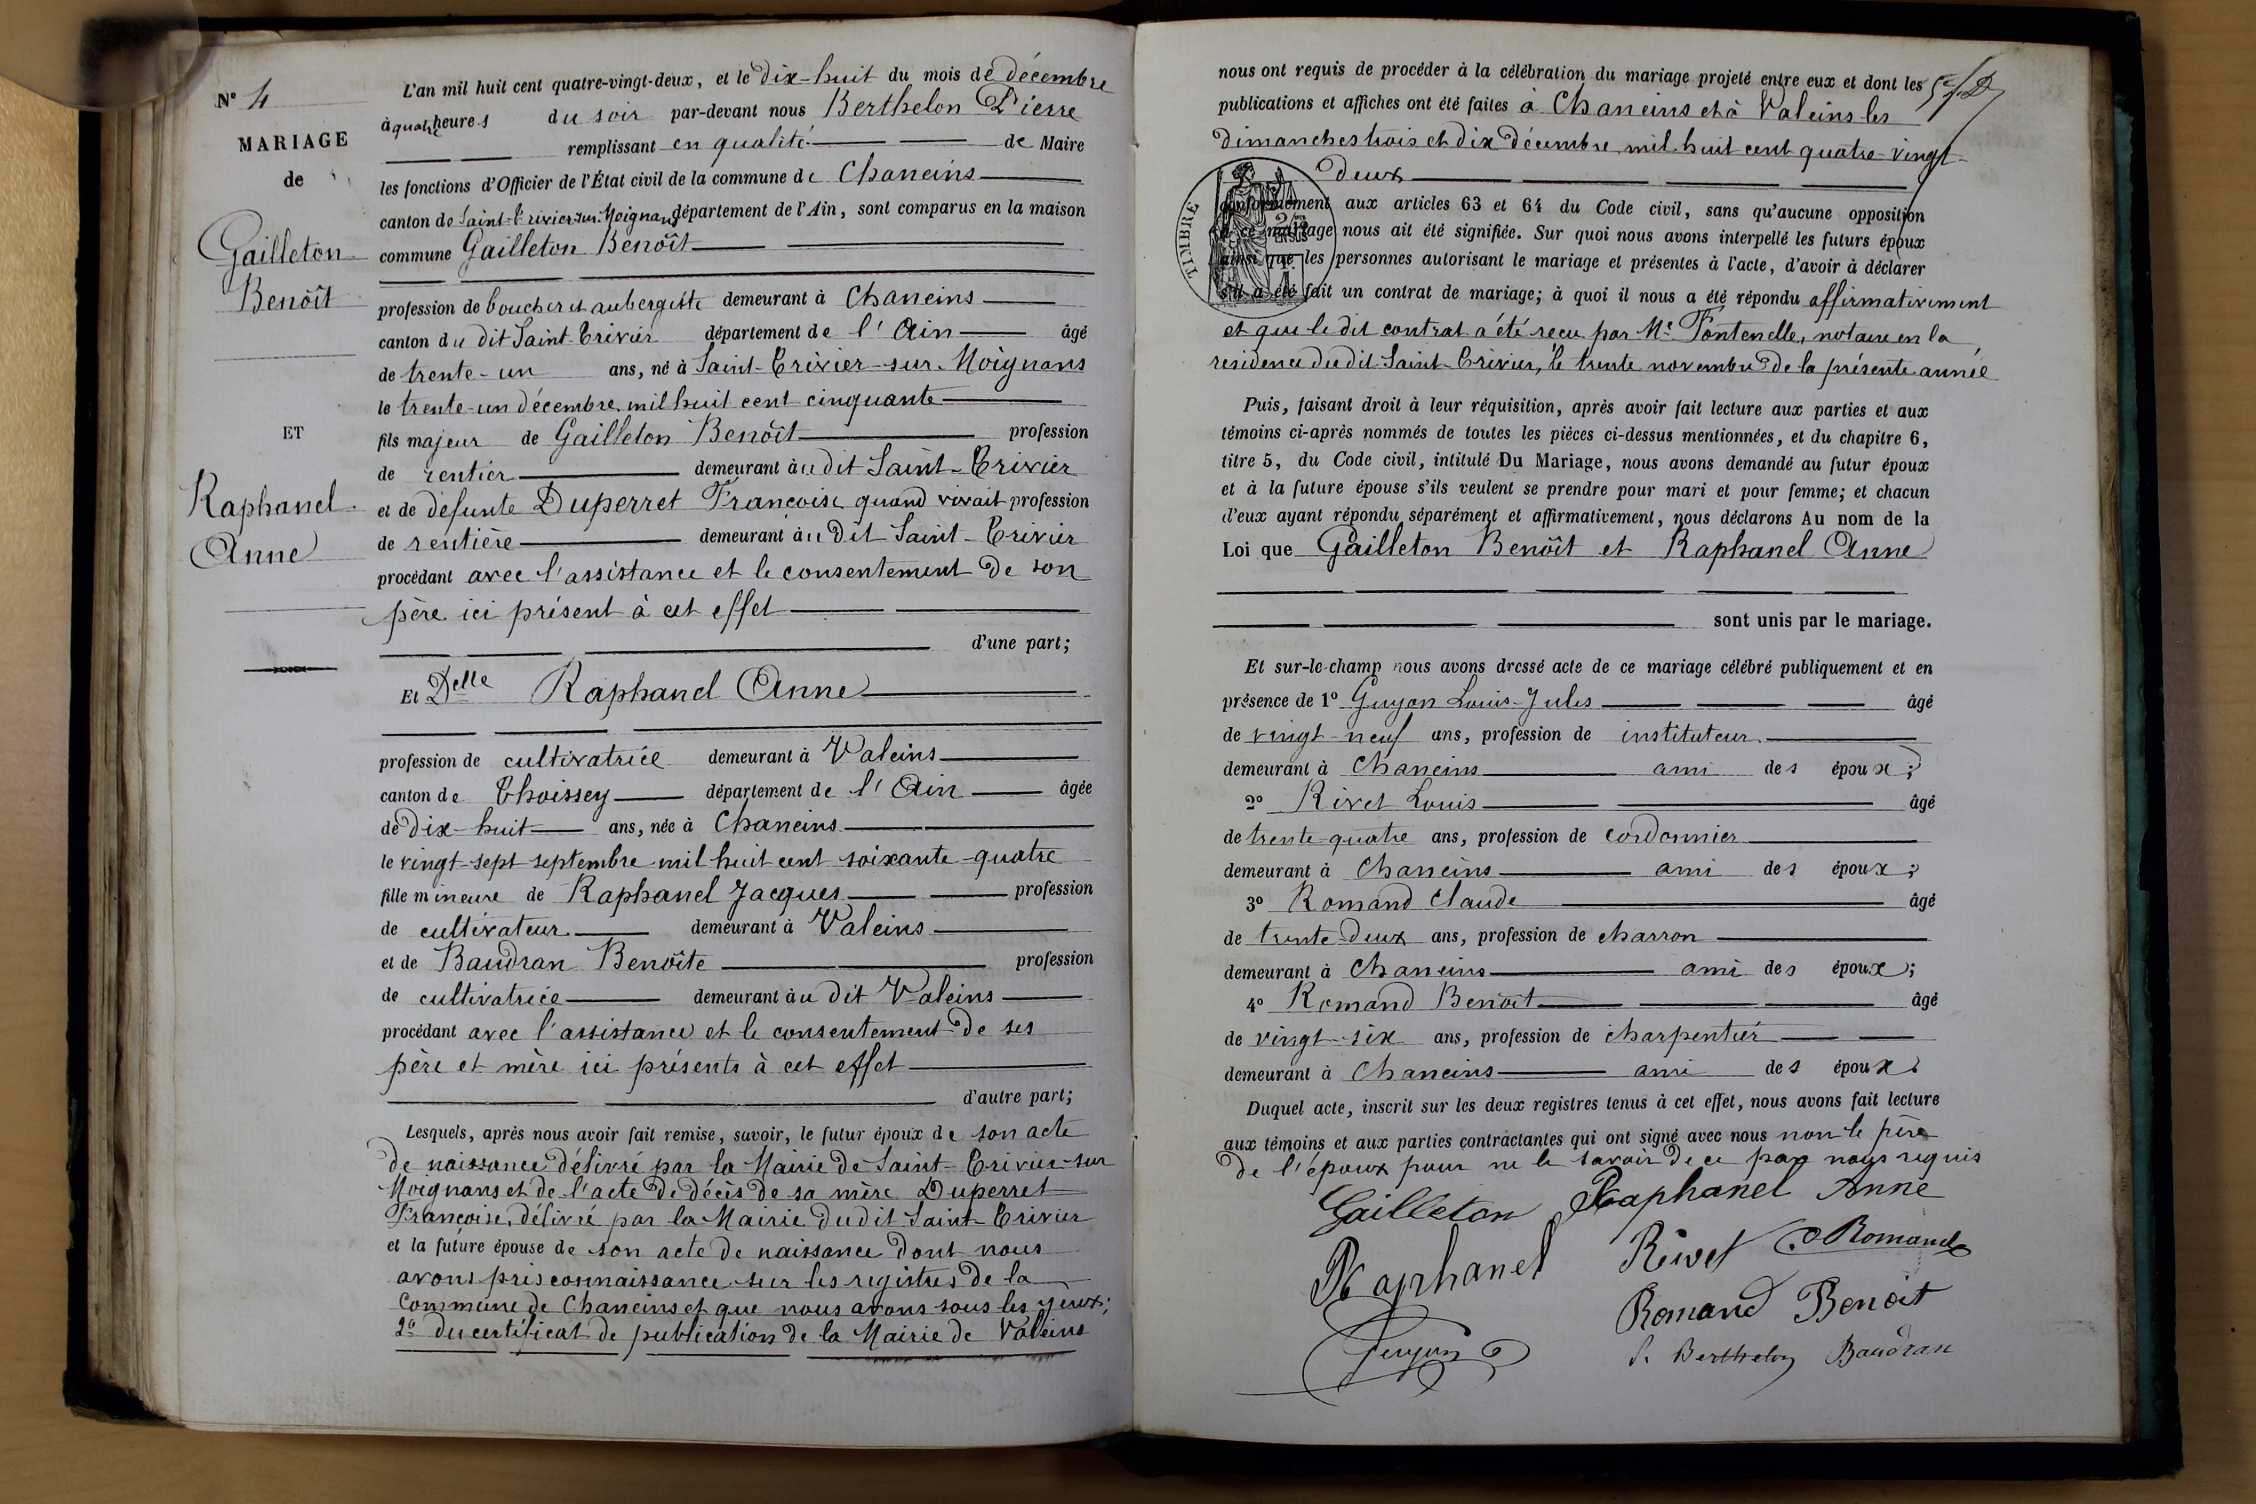 N° 4
MARIAGE
de
Gailleton
Benoît
ET
Raphanel
Anne
L'an mil huit cent quatre-vingt-deux, et le dix-huit du mois de décembre
à quatre heures du soir par-devant nous Berthelon Pierre
remplissant en qualité de Maire
les fonctions d'Officier de l'État civil de la commune de Chaneins
canton de Saint-Trivier-sur-Moignans département de l'Ain, sont comparus en la maison
commune Gailleton Benoît
profession de boucher et aubergiste demeurant à Chaneins
canton du dit Saint-Trivier département de l'Ain âgé
de trente-un ans, né à Saint-Trivier-sur-Moignans
le trente-un décembre mil huit cent cinquante
fils majeur de Gailleton Benoît profession
de rentier demeurant au dit Saint-Trivier
et de défunte Duperret Françoise quand vivait profession
de rentière demeurant au dit Saint-Trivier
procédant avec l'assistance et le consentement de son
père ici présent à cet effet
d'une part;
Et Delle Raphanel Anne
profession de cultivatrice demeurant à Valeins
canton de Thoissey département de l'Ain âgée
de dix-huit ans, née à Chaneins
le vingt-sept septembre mil huit cent soixante-quatre
fille mineure de Raphanel Jacques profession
de cultivateur demeurant à Valeins
et de Baudran Benoîte profession
de cultivatrice demeurant au dit Valeins
procédant avec l'assistance et le consentement de ses
père et mère ici présents à cet effet
d'autre part;
Lesquels, après nous avoir fait remise, savoir, le futur époux de son acte
de naissance délivré par la Mairie de Saint-Trivier-sur
Moignans et de l'acte de décès de sa mère Duperret
Françoise, délivré par la Mairie du dit Saint-Trivier
et la future épouse de son acte de naissance dont nous
avons pris connaissance sur les registres de la
commune de Chaneins et que nous avons sous les yeux;
2° du certificat de publication de la Mairie de Valeins
nous ont requis de procéder à la célébration du mariage projeté entre eux et dont les
publications et affiches ont été faites à Chaneins et à Valeins les
dimanches trois et dix décembre mil huit cent quatre-vingt-
deux
TIMBRE
conformément aux articles 63 et 64 du Code civil, sans qu'aucune opposition
à ce mariage nous ait été signifiée. Sur quoi nous avons interpellé les futurs époux
ainsi que les personnes autorisant le mariage et présentes à l'acte, d'avoir à déclarer
s'il a été fait un contrat de mariage; à quoi il nous a été répondu affirmativement
et que le dit contrat a été reçu par Me Fontenelle, notaire en la
résidence du dit Saint-Trivier, le trente novembre de la présente année
Puis, faisant droit à leur réquisition, après avoir fait lecture aux parties et aux
témoins ci-après nommés de toutes les pièces ci-dessus mentionnées, et du chapitre 6,
titre 5, du Code civil, intitulé Du Mariage, nous avons demandé au futur époux
et à la future épouse s'ils veulent se prendre pour mari et pour femme; et chacun
d'eux ayant répondu séparément et affirmativement, nous déclarons Au nom de la
Loi que Gailleton Benoît et Raphanel Anne
sont unis par le mariage.
Et sur-le-champ nous avons dressé acte de ce mariage célébré publiquement et en
présence de 1° Guyon Louis-Jules âgé
de vingt-neuf ans, profession de instituteur
demeurant à Chaneins ami des époux;
2° Rivet Louis âgé
de trente-quatre ans, profession de cordonnier
demeurant à Chaneins ami des époux;
3° Romand Claude âgé
de trente-deux ans, profession de charron
demeurant à Chaneins ami des époux;
4° Romand Benoit âgé
de vingt-six ans, profession de charpentier
demeurant à Chaneins ami des époux.
Duquel acte, inscrit sur les deux registres tenus à cet effet, nous avons fait lecture
aux témoins et aux parties contractantes qui ont signé avec nous non le père
de l'époux pour ne le savoir de ce par nous requis
Gailleton Raphanel Anne
Raphanel Rivet C Romand
Romand Benoit
Guyon P. Berthelon Baudran